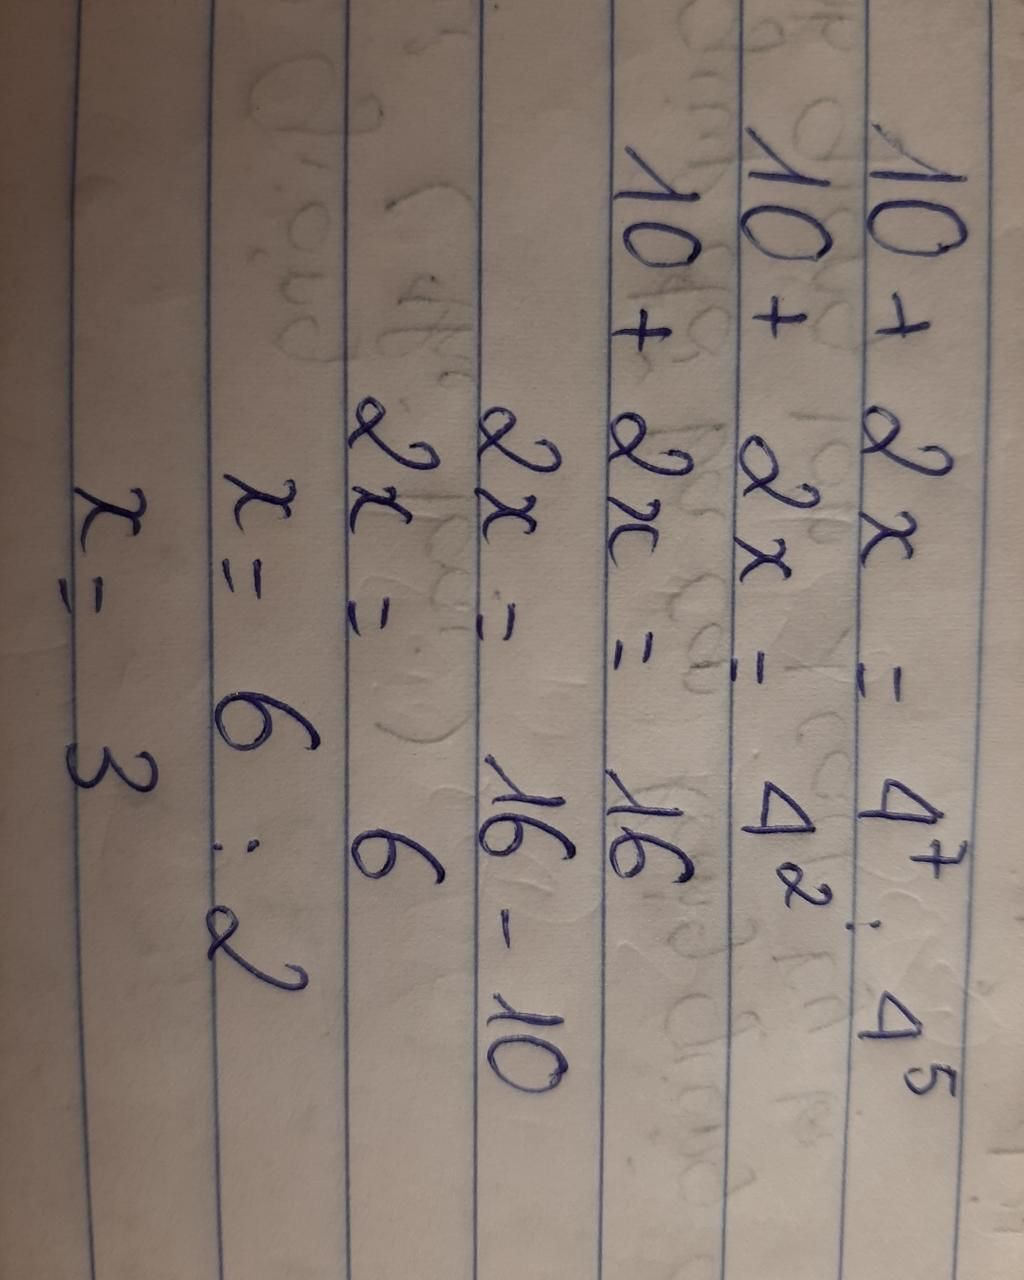 10 + 2x = 4⁷ : 4⁵
10 + 2x = 4²
10 + 2x = 16
2x = 16 - 10
2x = 6
x = 6 : 2
x = 3